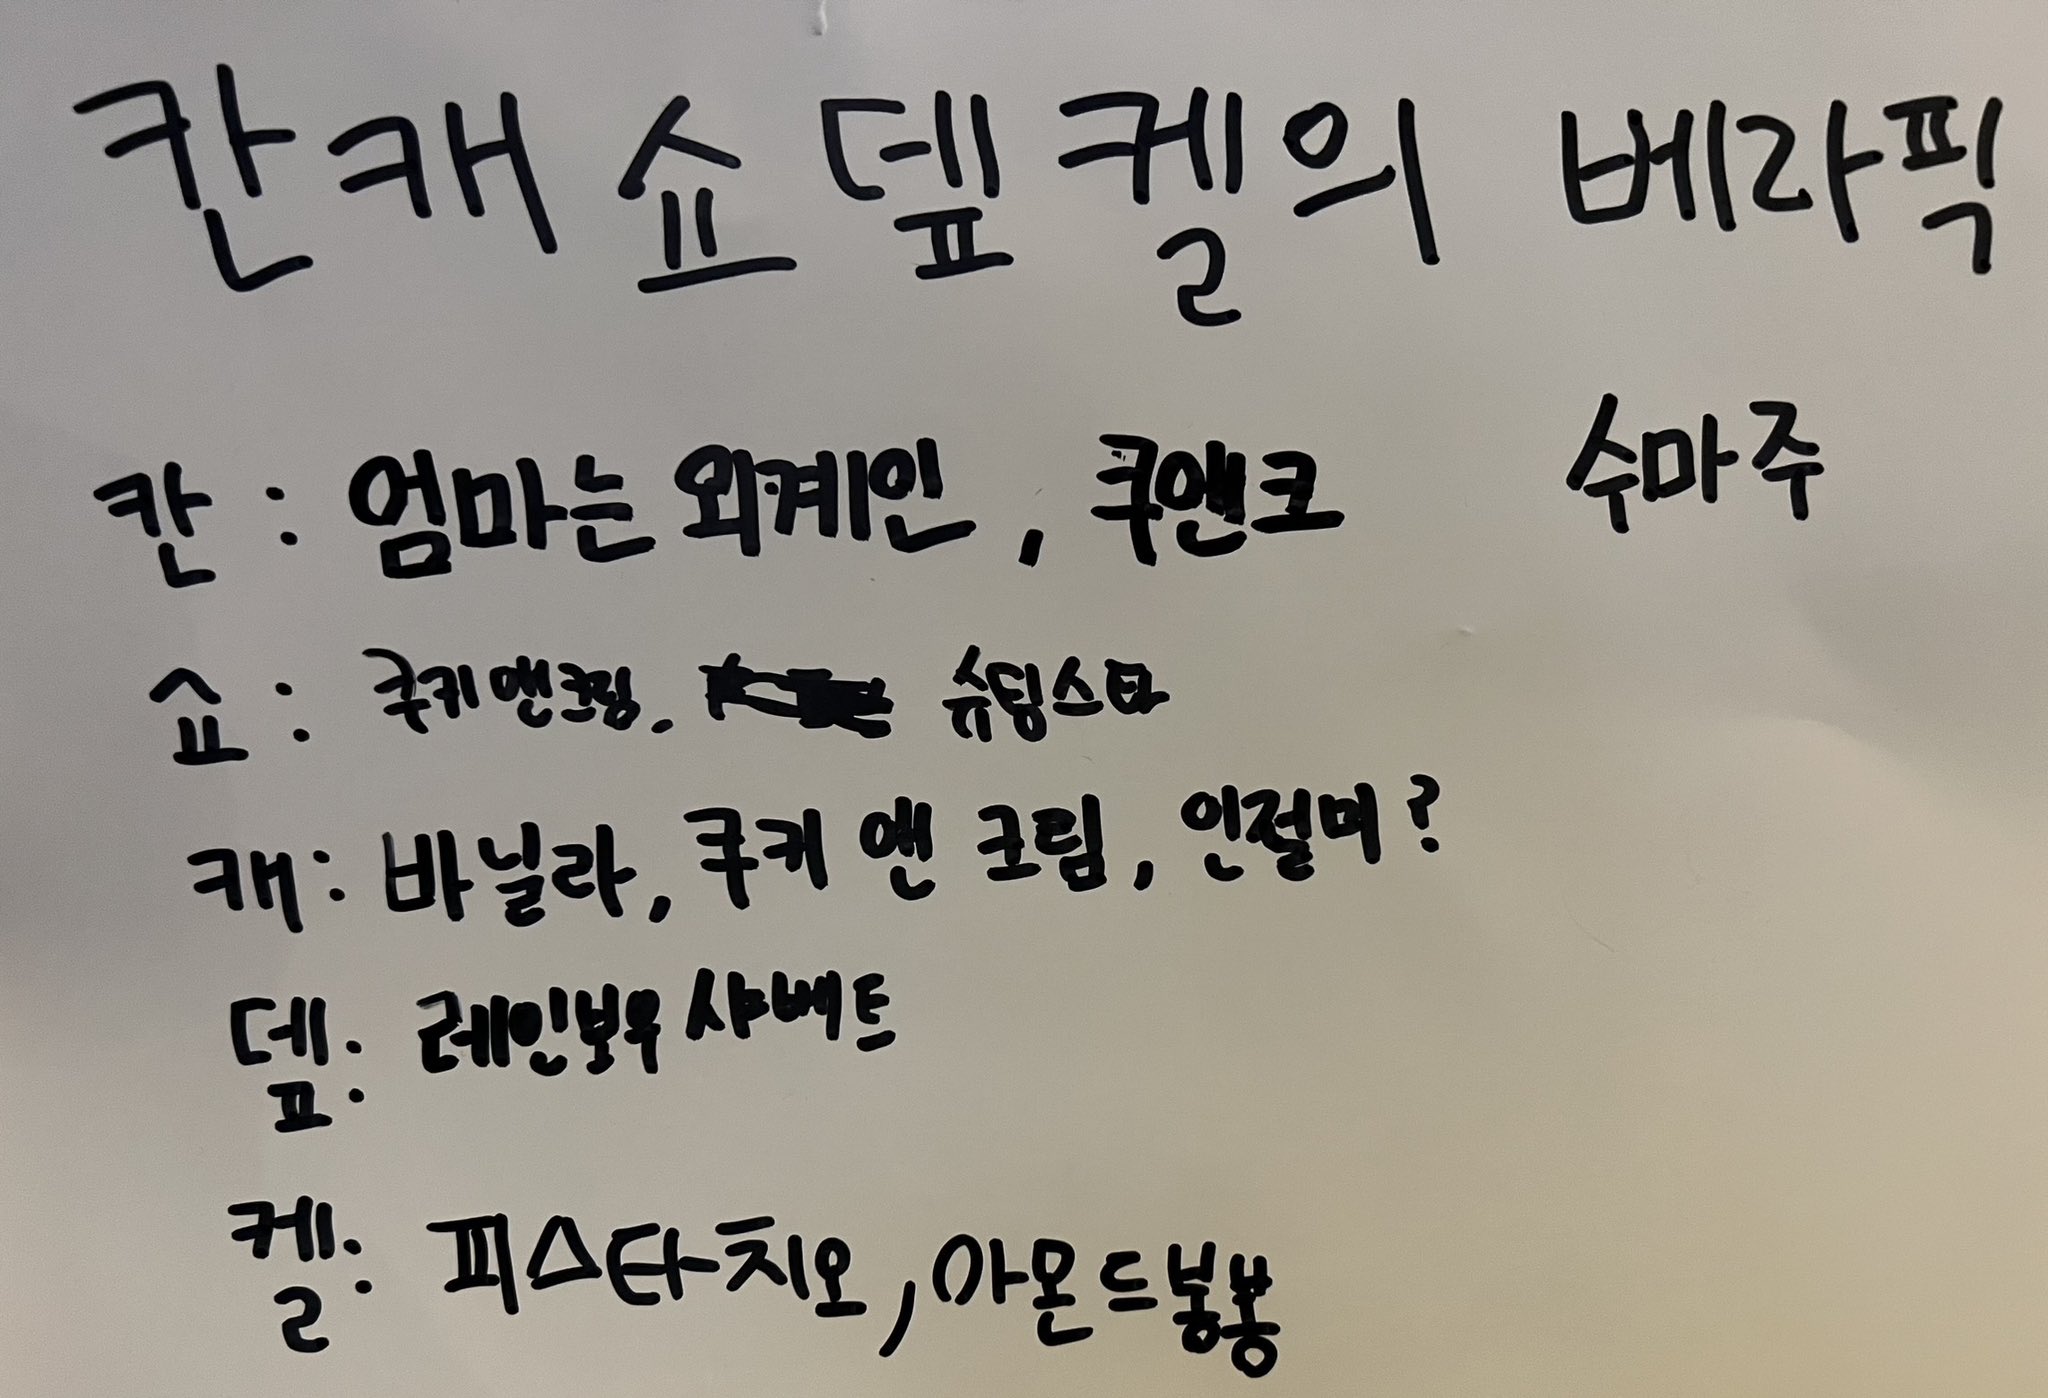 칸캐쇼뎊켈의 베라픽
칸 : 엄마는 외계인, 쿠앤크 수마주
쇼 : 쿠키앤크림. 슈팅스타
캐 : 바닐라, 쿠키 앤 크림, 인절미?
뎊 : 레인보우 샤베트
켈 : 피스타치오, 아몬드봉봉